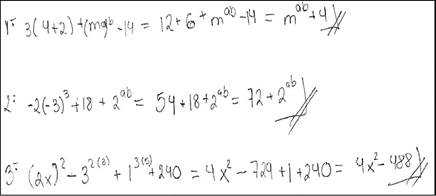 1º: 3(4+2)+(m^a)^b-14 = 12+6+m^ab-14 = m^ab+4//
2º: -2(-3)^3+18+2^ab = 54+18+2^ab = 72+2^ab//
3º: (2x)^2-3^2(3)+1^3(5)+240 = 4x^2-729+1+240 = 4x^2-488//